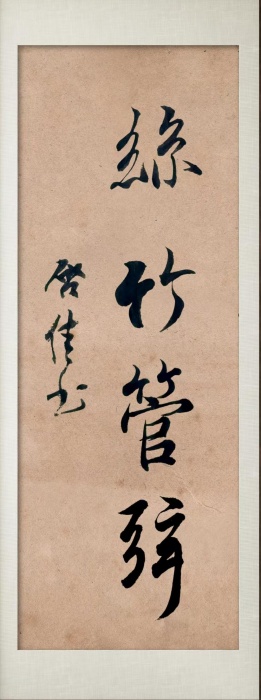 絲竹管弦
啓佳书